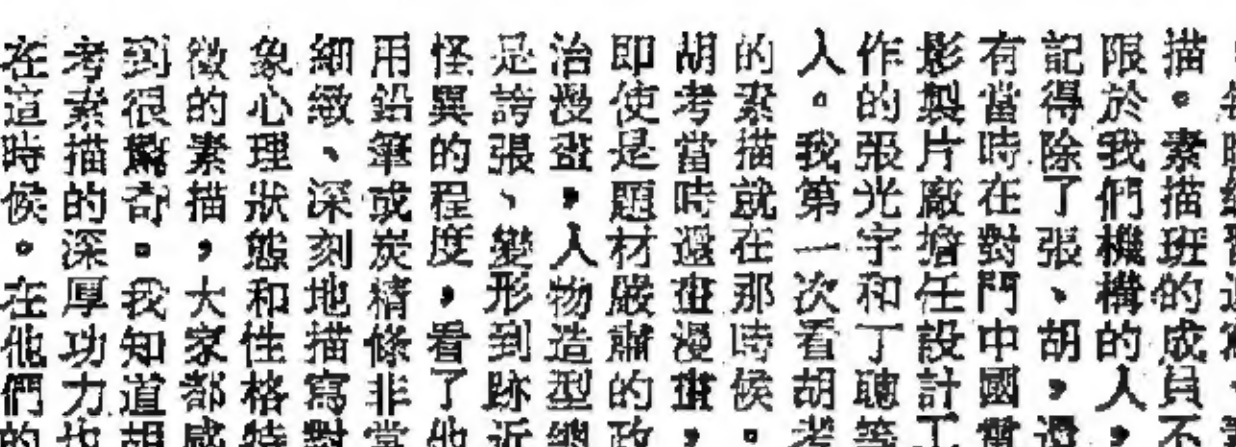 描。素描班的成員不
限於我們機構的人，
記得除了張、胡，還
有當時在對門中國電
影製片廠擔任設計工
作的張光宇和丁聰等
人。我第一次看胡考
的素描就在那時候。
胡考當時還畫漫畫，
即使是題材嚴肅的政
治漫畫，人物造型總
是誇張、變形到跡近
怪異的程度，看了他
用鉛筆或炭精條非常
細緻、深刻地描寫對
象心理狀態和性格特
徵的素描，大家都感
到很驚奇。我知道胡
考素描的深厚功力也
在這時候。在他們的